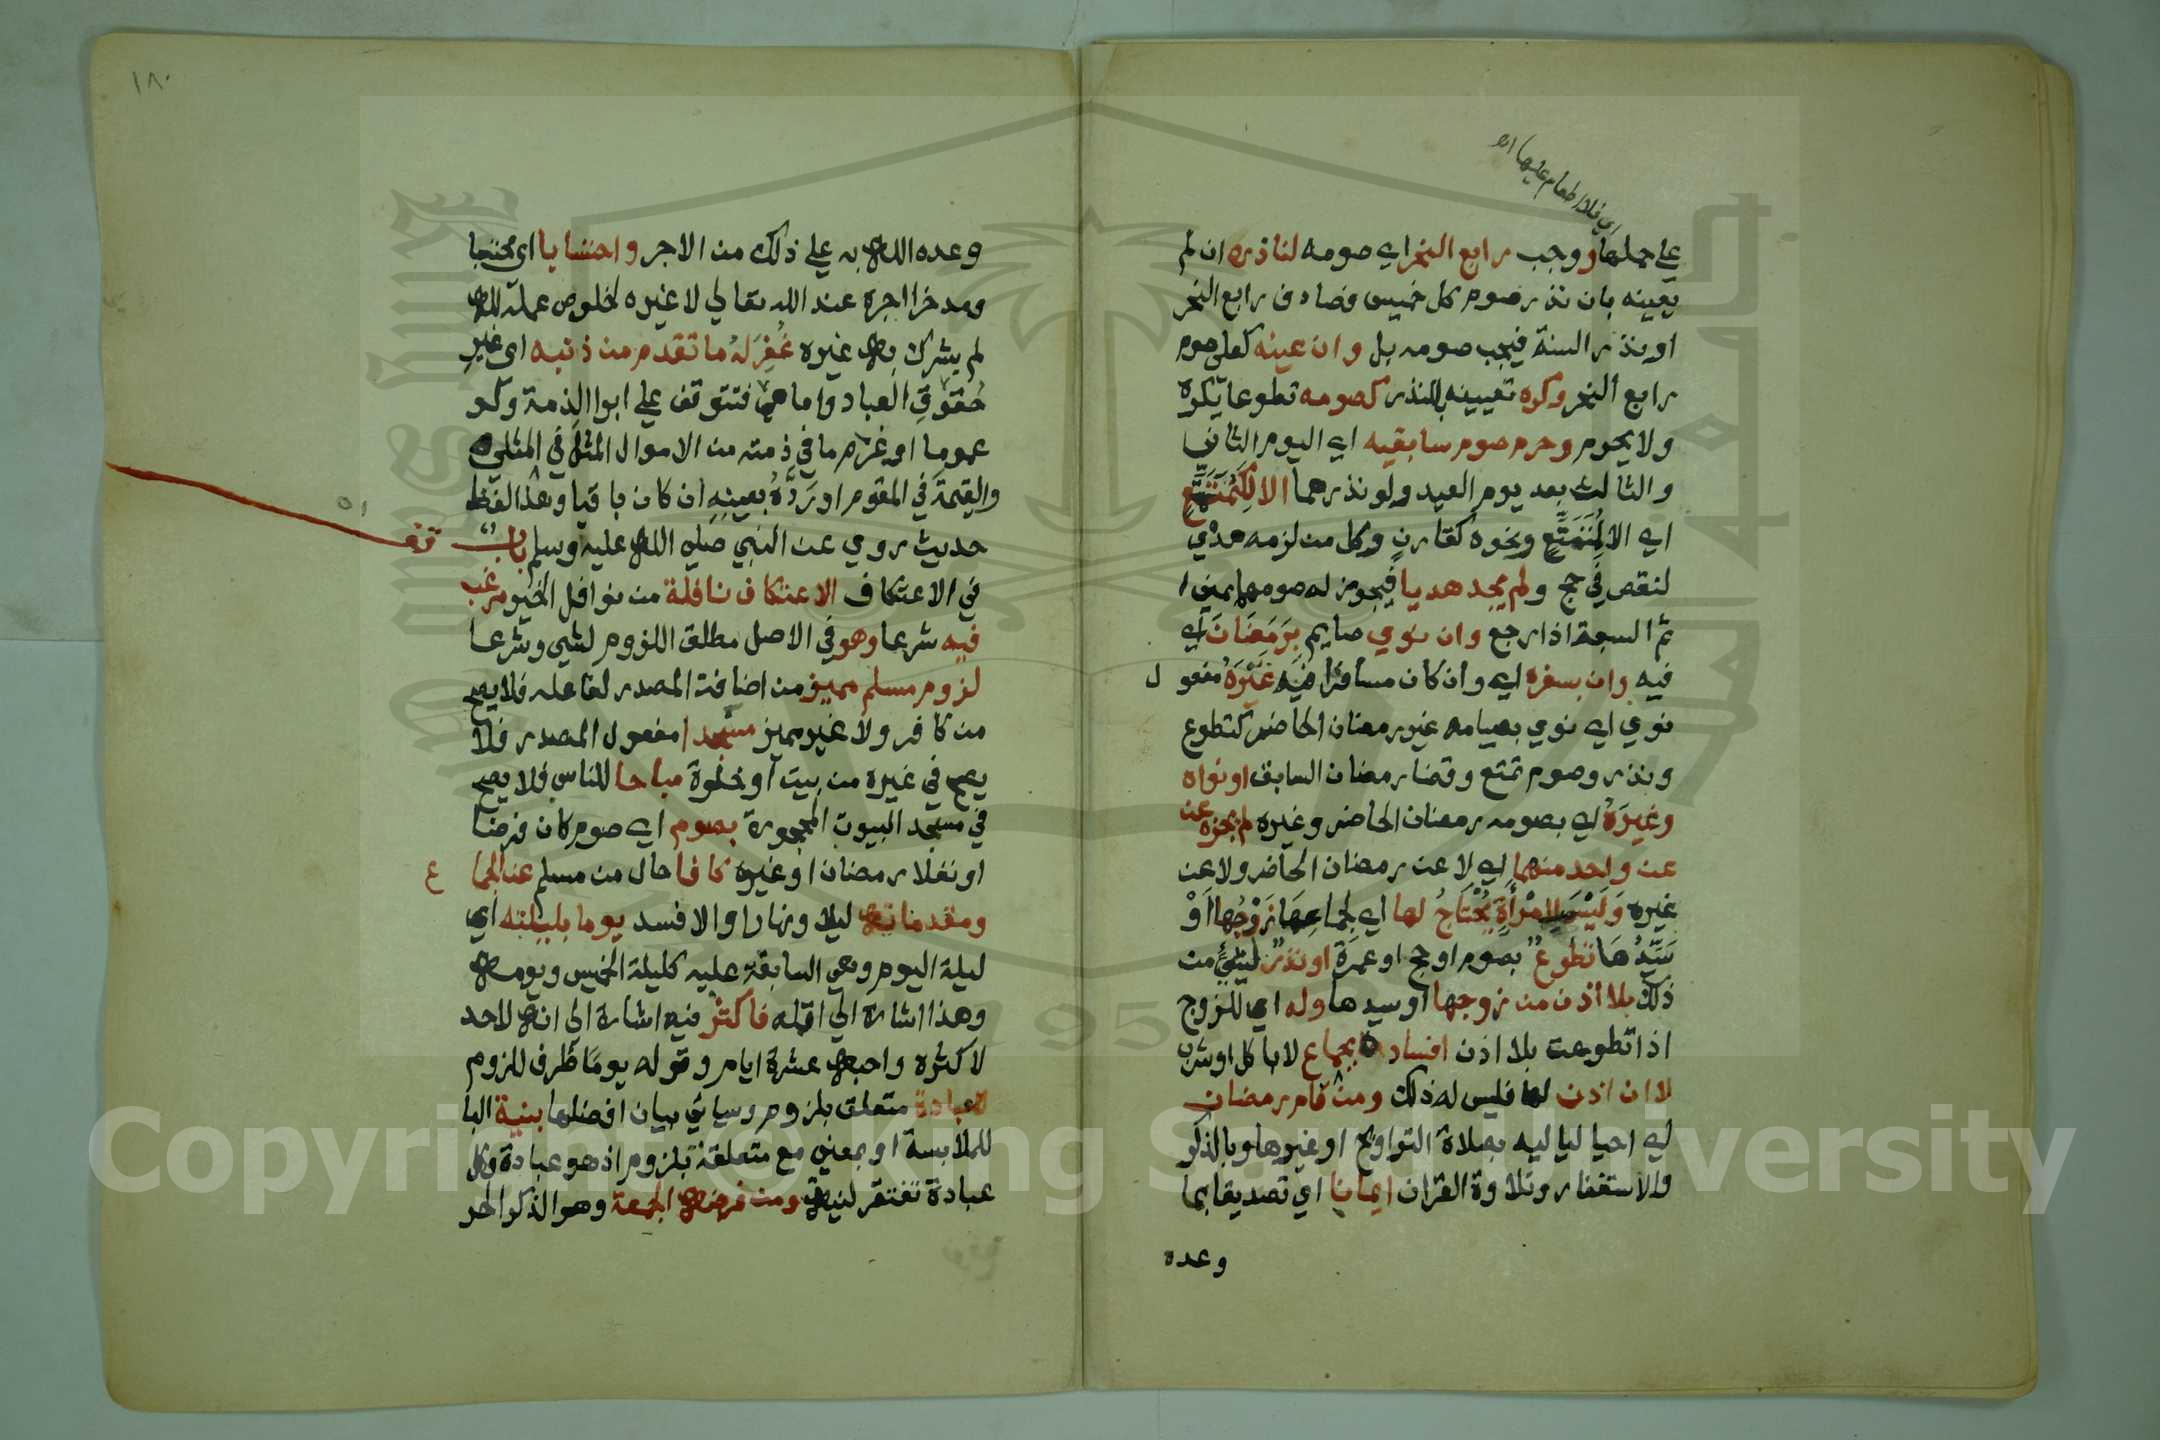 اي فلا اطعام عليها اه
علي حملها ووجب رابع النحر اي صومه لناذره ان لم
يعينه بان نذر صوم كل خميس فصادف رابع النحر
او نذر السنة فيجب صومه بل وان عينه كعلي صوم
رابع النحر وكره تعيينه بالنذر كصومه تطوعا يكره
ولا يحرم وحرم صوم سابقيه اي اليوم الثاني
والثالث بعد يوم العيد ولو نذرهما الا لكمتمتع
اي الا لمتمتع ونحوه كقارن وكل من لزمه هدي
لنقص في حج ولم يجد هديا فيجوز له صومهما بمني
ثم السبعة اذا رجع وان نوي صايم برمضان اي
فيه وان بسفره اي وان كان مسافرا فيه غيره مفعول
نوي اي نوي بصيامه غير رمضان الحاضر كتطوع
ونذر وصوم تمتع وقضا رمضان السابق او نواه
وغيره اي بصومه رمضان الحاضر وغيره لم يجزه عن
عن واحد منهما اي لا عن رمضان الحاضر ولا عن
غيره وليس لامرأة يحتاج لها اي لجماعها زوجها او
سيدها تطوع بصوم او حج او عمرة او نذر لشئ من
ذلك بلا اذن من زوجها او سيدها وله اي للزوج
اذا تطوعت بلا اذن افساده بجماع لا باكل او شرب
لا ان اذن لها فليس له ذلك ومن قام رمضان
اي احيا لياليه بصلاة التراويح او غيرها وبالذكر
والاستغفار وتلاوة القران ايمانا اي تصديقا بما
وعده
١٨٠
وعده الله به علي ذلك من الاجر واحتسابا اي محتسبا
ومدخرا اجره عند الله تعالي لا غيره لخلوص عمله لله
لم يشرك به غيره غفر له ما تقدم من ذنبه اي غير
حقوق العباد واما هي فتتوقف علي ابرا الذمة ولو
عموما او غرم ما في ذمته من الاموال المثل في المثلي
والقيمة في المقوم او رده بعينه ان كان باقيا وهذا لفظ
حديث روي عن النبي صلي الله عليه وسلم باب
في الاعتكاف الاعتكاف نافلة من نوافل الخير مرغب
فيه شرعا وهو في الاصل مطلق اللزوم لشي وشرعا
لزوم مسلم مميز من اضافة المصدر لفاعله فلا يصح
من كافر ولا غير مميز مسجدا مفعول المصدر فلا
يصح في غيره من بيت او خلوة مباحا للناس فلا يصح
في مسجد البيوت المحجورة بصوم اي صوم كان فرضا
او نفلا رمضان او غيره كافا حال من مسلم عن الجماع
ومقدماته ليلا ونهارا والا فسد يوما بليلته اي
ليلة اليوم وهي السابقة عليه كليلة الخميس ويومه
وهذا اشارة الي اقله فاكثر فيه اشارة الي انه لاحد
لاكثره واحبه عشرة ايام وقوله يوما ظرف للزوم
لعبادة متعلق بلزوم وسياتي بيان افضلها بنية البا
للملابسة او بمعني مع متعلقة بلزوم اذ هو عبادة وكل
عبادة تفتقر لنية ومن فرضه الجمعة وهو الذكر الحر